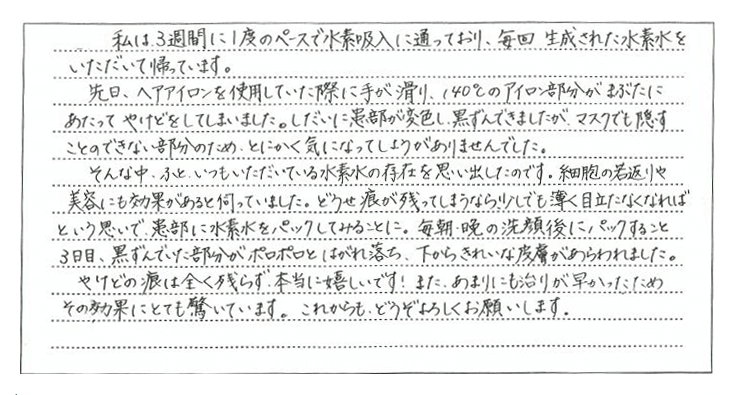 私は3週間に1度のペースで水素吸入に通っており、毎回 生成された水素水を
いただいて帰っています。
先日、ヘアアイロンを使用していた際に手が滑り、140℃のアイロン部分がまぶたに
あたって やけどをしてしまいました。しだいに患部が変色し、黒ずんできましたが、マスクでも隠す
ことのできない部分のため、とにかく気になってしょうがありませんでした。
そんな中、ふと、いつもいただいている水素水の存在を思い出したのです。細胞の若返りや
美容にも効果があると伺っていました。どうせ痕が残ってしまうなら、少しでも薄く目立たなくなれば
という思いで、患部に水素水をパックしてみることに。毎朝・晩の洗顔後にパックすること
3日目、黒ずんでいた部分がポロポロとはがれ落ち、下からきれいな皮膚があらわれました。
やけどの痕は全く残らず、本当に嬉しいです！また、あまりにも治りが早かったため
その効果にとても驚いています。これからも、どうぞよろしくお願いします。